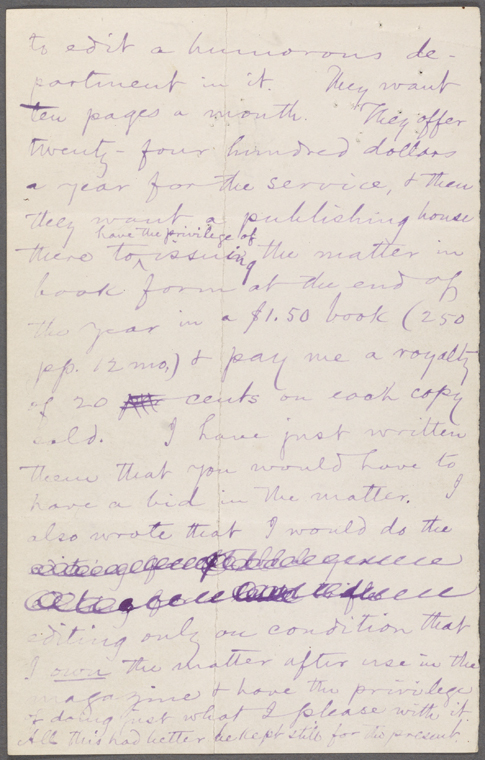 to edit a humorous de-
partment in it. They want
ten pages a month. They offer
twenty-four hundred dollars
a year for the service, & then
they want a publishing house
have the privilege of
there to issuing the matter in
book form at the end of
the year in a $1.50 book (250
pp. 12 mo.) & pay me a royalty
of 20 cents on each copy
sold. I have just written
them that you would have to
have a bid in the matter. I
also wrote that I would do the
editing only on condition that
I own the matter after use in the
magazine & have the privilege
of doing just what I please with it.
All this had better be kept still for the present.